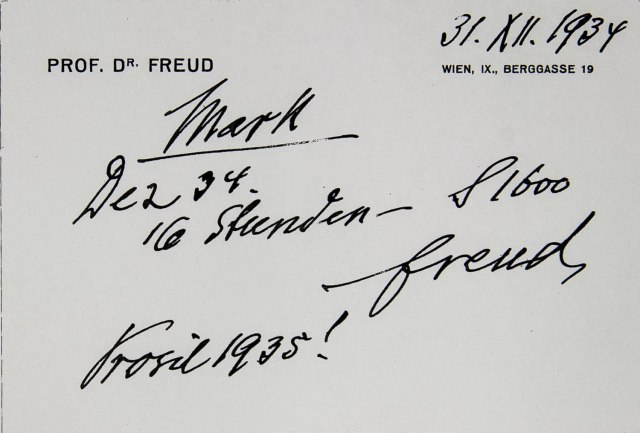 31. XII. 1934
PROF. DR. FREUD
WIEN, IX., BERGGASSE 19
Mark
Dez 34.
16 Stunden — S 1600
Freud
Prosit 1935!